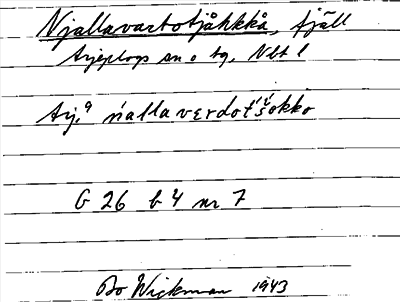 Njallavartotjåhkkå, fjäll
Arjeplogs sn o tg, Nbt l
Arj. ᵃ ńalla vɛrdot́š́okko
G 26 b 4 nr 7
Bo Wickman 1943